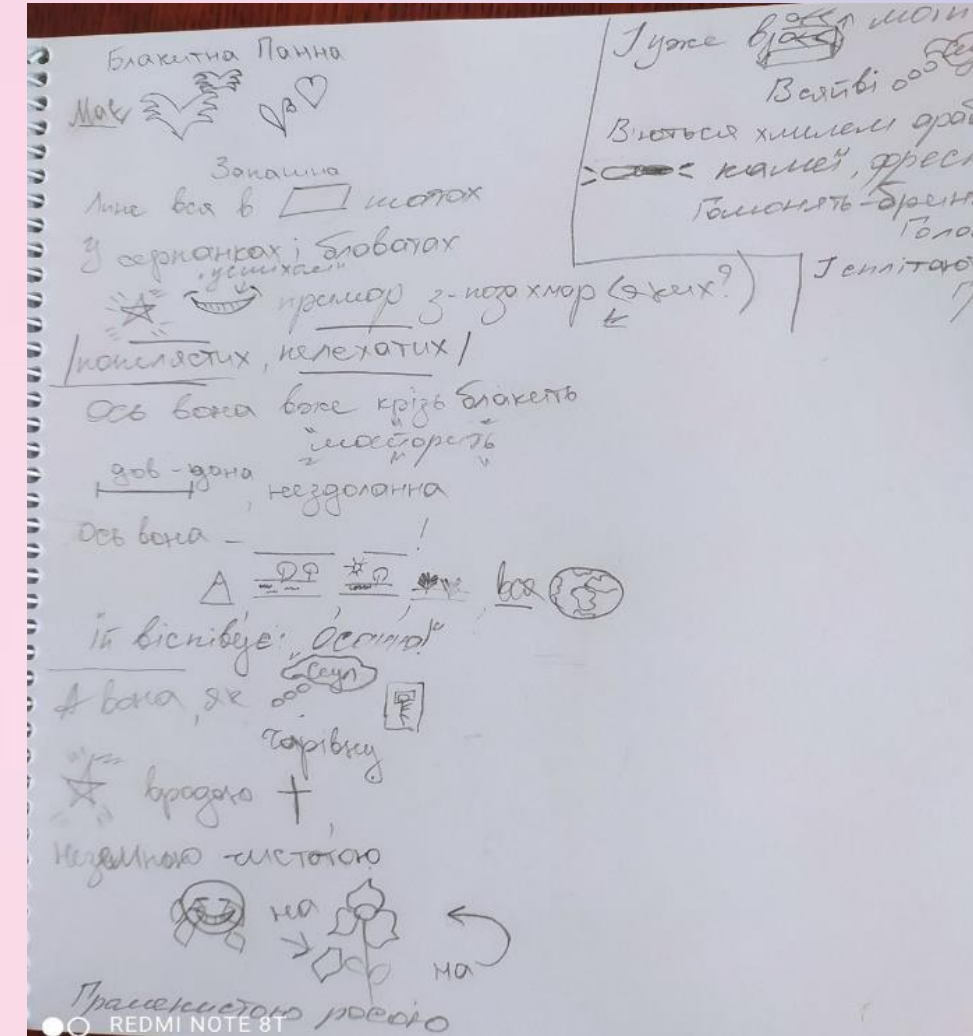 Блакитна Панна
Має
Запашна
Лине вся в шатах
У серпанках і блаватах
"усміхає"
примар з-поза хмар (яких?)
/пошлястих, пелехатих/
Ось вона вже крізь блакить
"майорить"
дов-дана, нездоланна
Ось вона –
!
вся
їй виспівує: „Осанна!"
А вона, як
Сеул
Чарівну
вродою
Неземною чистотою
на
на
Променистою росою
І уже в
Всяйві
В'ються хмелем араб
камеї, фреск
Гомонять-брин
Голо
І сплітаю
REDMI NOTE 8T